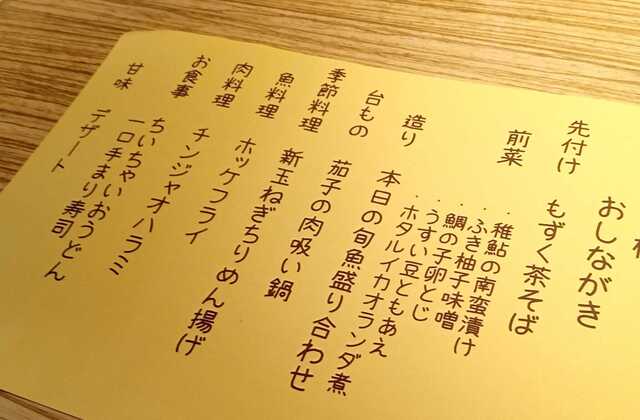 おしながき
先付け もずく茶そば
前菜 ・稚鮎の南蛮漬け
・ふき柚子味噌
・鯛の子卵とじ
・うすい豆ともあえ
・ホタルイカオランダ煮
造り 本日の旬魚盛り合わせ
台もの 茄子の肉吸い鍋
季節料理 新玉ねぎちりめん揚げ
魚料理 ホッケフライ
肉料理 チンジャオハラミ
お食事 ちいちゃいおうどん
一口手まり寿司
甘味 デザート